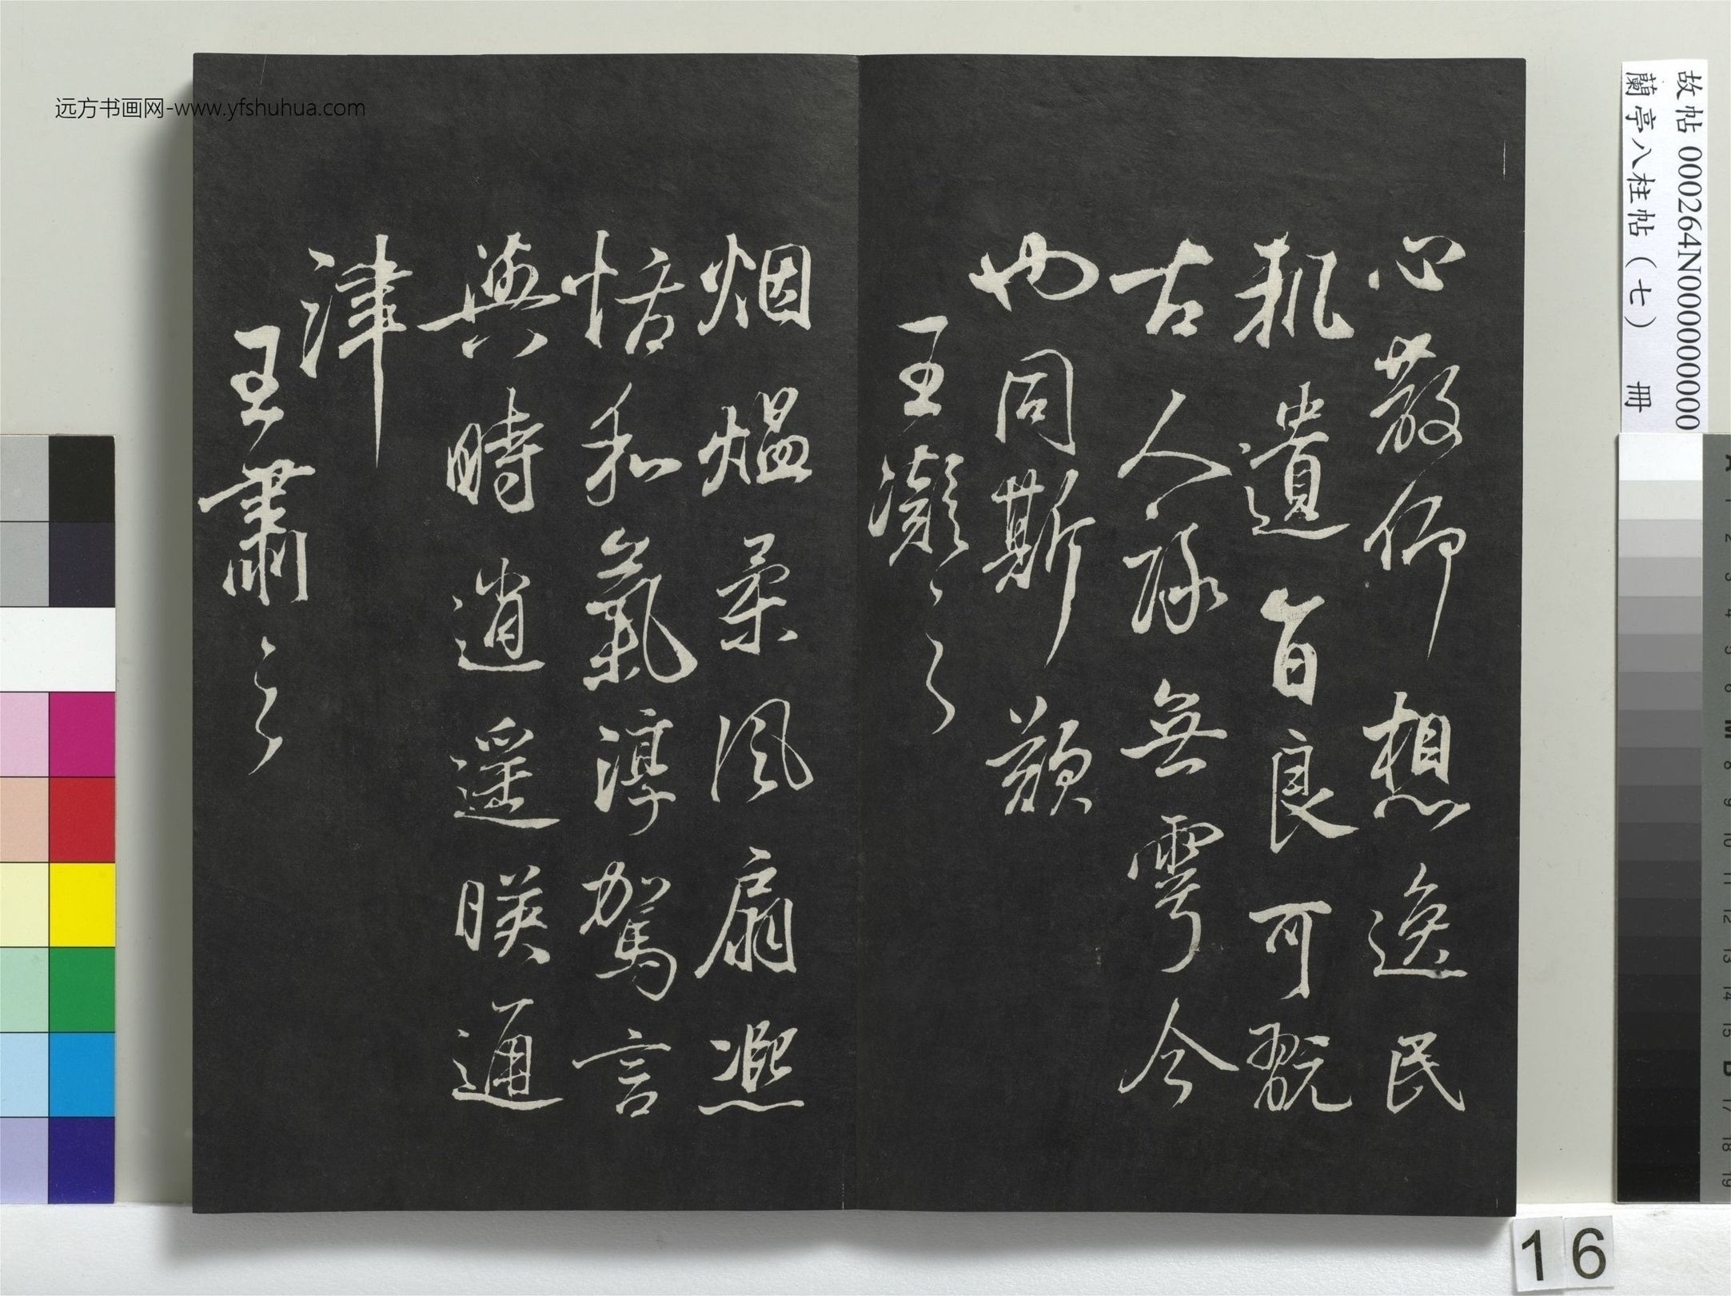 心散仰想逸民
軌遺音良可翫
古人詠無雩今
也同斯歎
王凝之
烟熅柔風扇熈
恬和氣淳駕言
興時逍遥映通
津
王肅之
故帖 000264N000000000
蘭亭八柱帖（七） 冊
远方书画网-www.yfshuhua.com
16